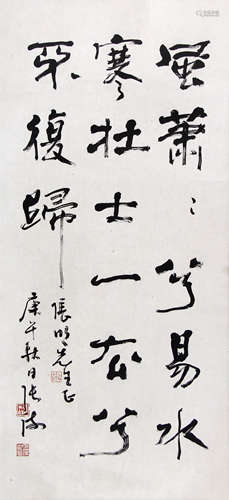 風蕭〻兮易水
寒壮士一去兮
不復歸
張明先生正
庚午秋日张海